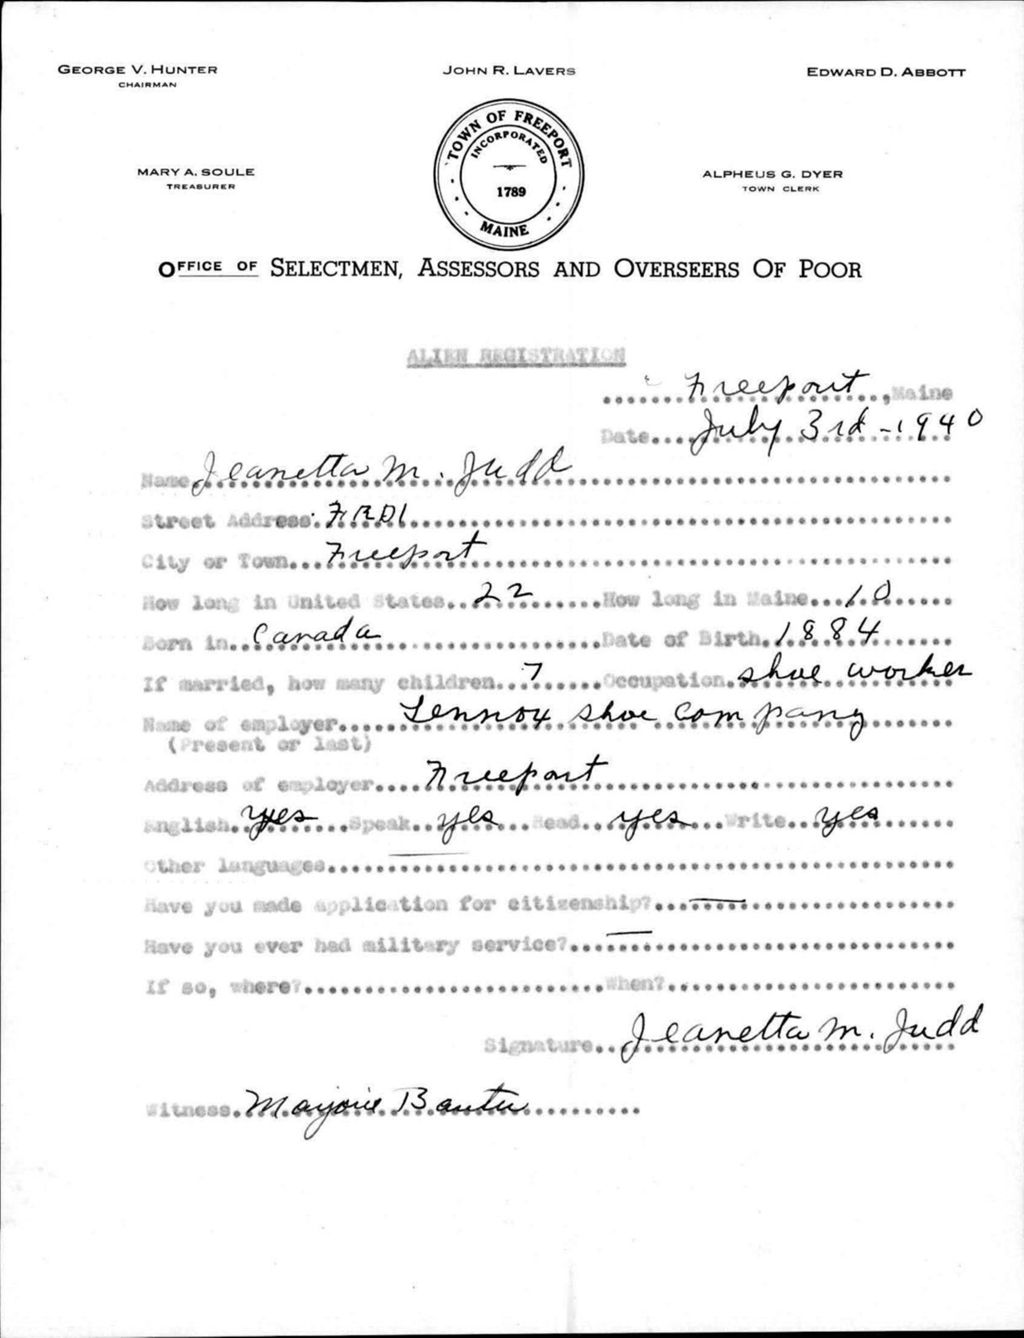 GEORGE V. HUNTER
CHAIRMAN
JOHN R. LAVERS
EDWARD D. ABBOTT
MARY A. SOULE
TREASURER
TOWN OF FREEPORT
INCORPORATED
1789
MAINE
ALPHEUS G. DYER
TOWN CLERK
OFFICE OF SELECTMEN, ASSESSORS AND OVERSEERS OF POOR
ALIEN REGISTRATION
Freeport, Maine
Date July 3rd - 1940
Name Jeanetta M. Judd
Street Address FRD1
City or Town Freeport
How long in United States 22 How long in Maine 10
Born in Canada Date of Birth 1884
If married, how many children 7 Occupation shoe worker
Name of employer Lennox Shoe Company
(Present or last)
Address of employer Freeport
English yes Speak yes Read yes Write yes
Other languages —
Have you made application for citizenship? —
Have you ever had military service? —
If so, where? When?
Signature Jeanetta M. Judd
Witness Marjorie